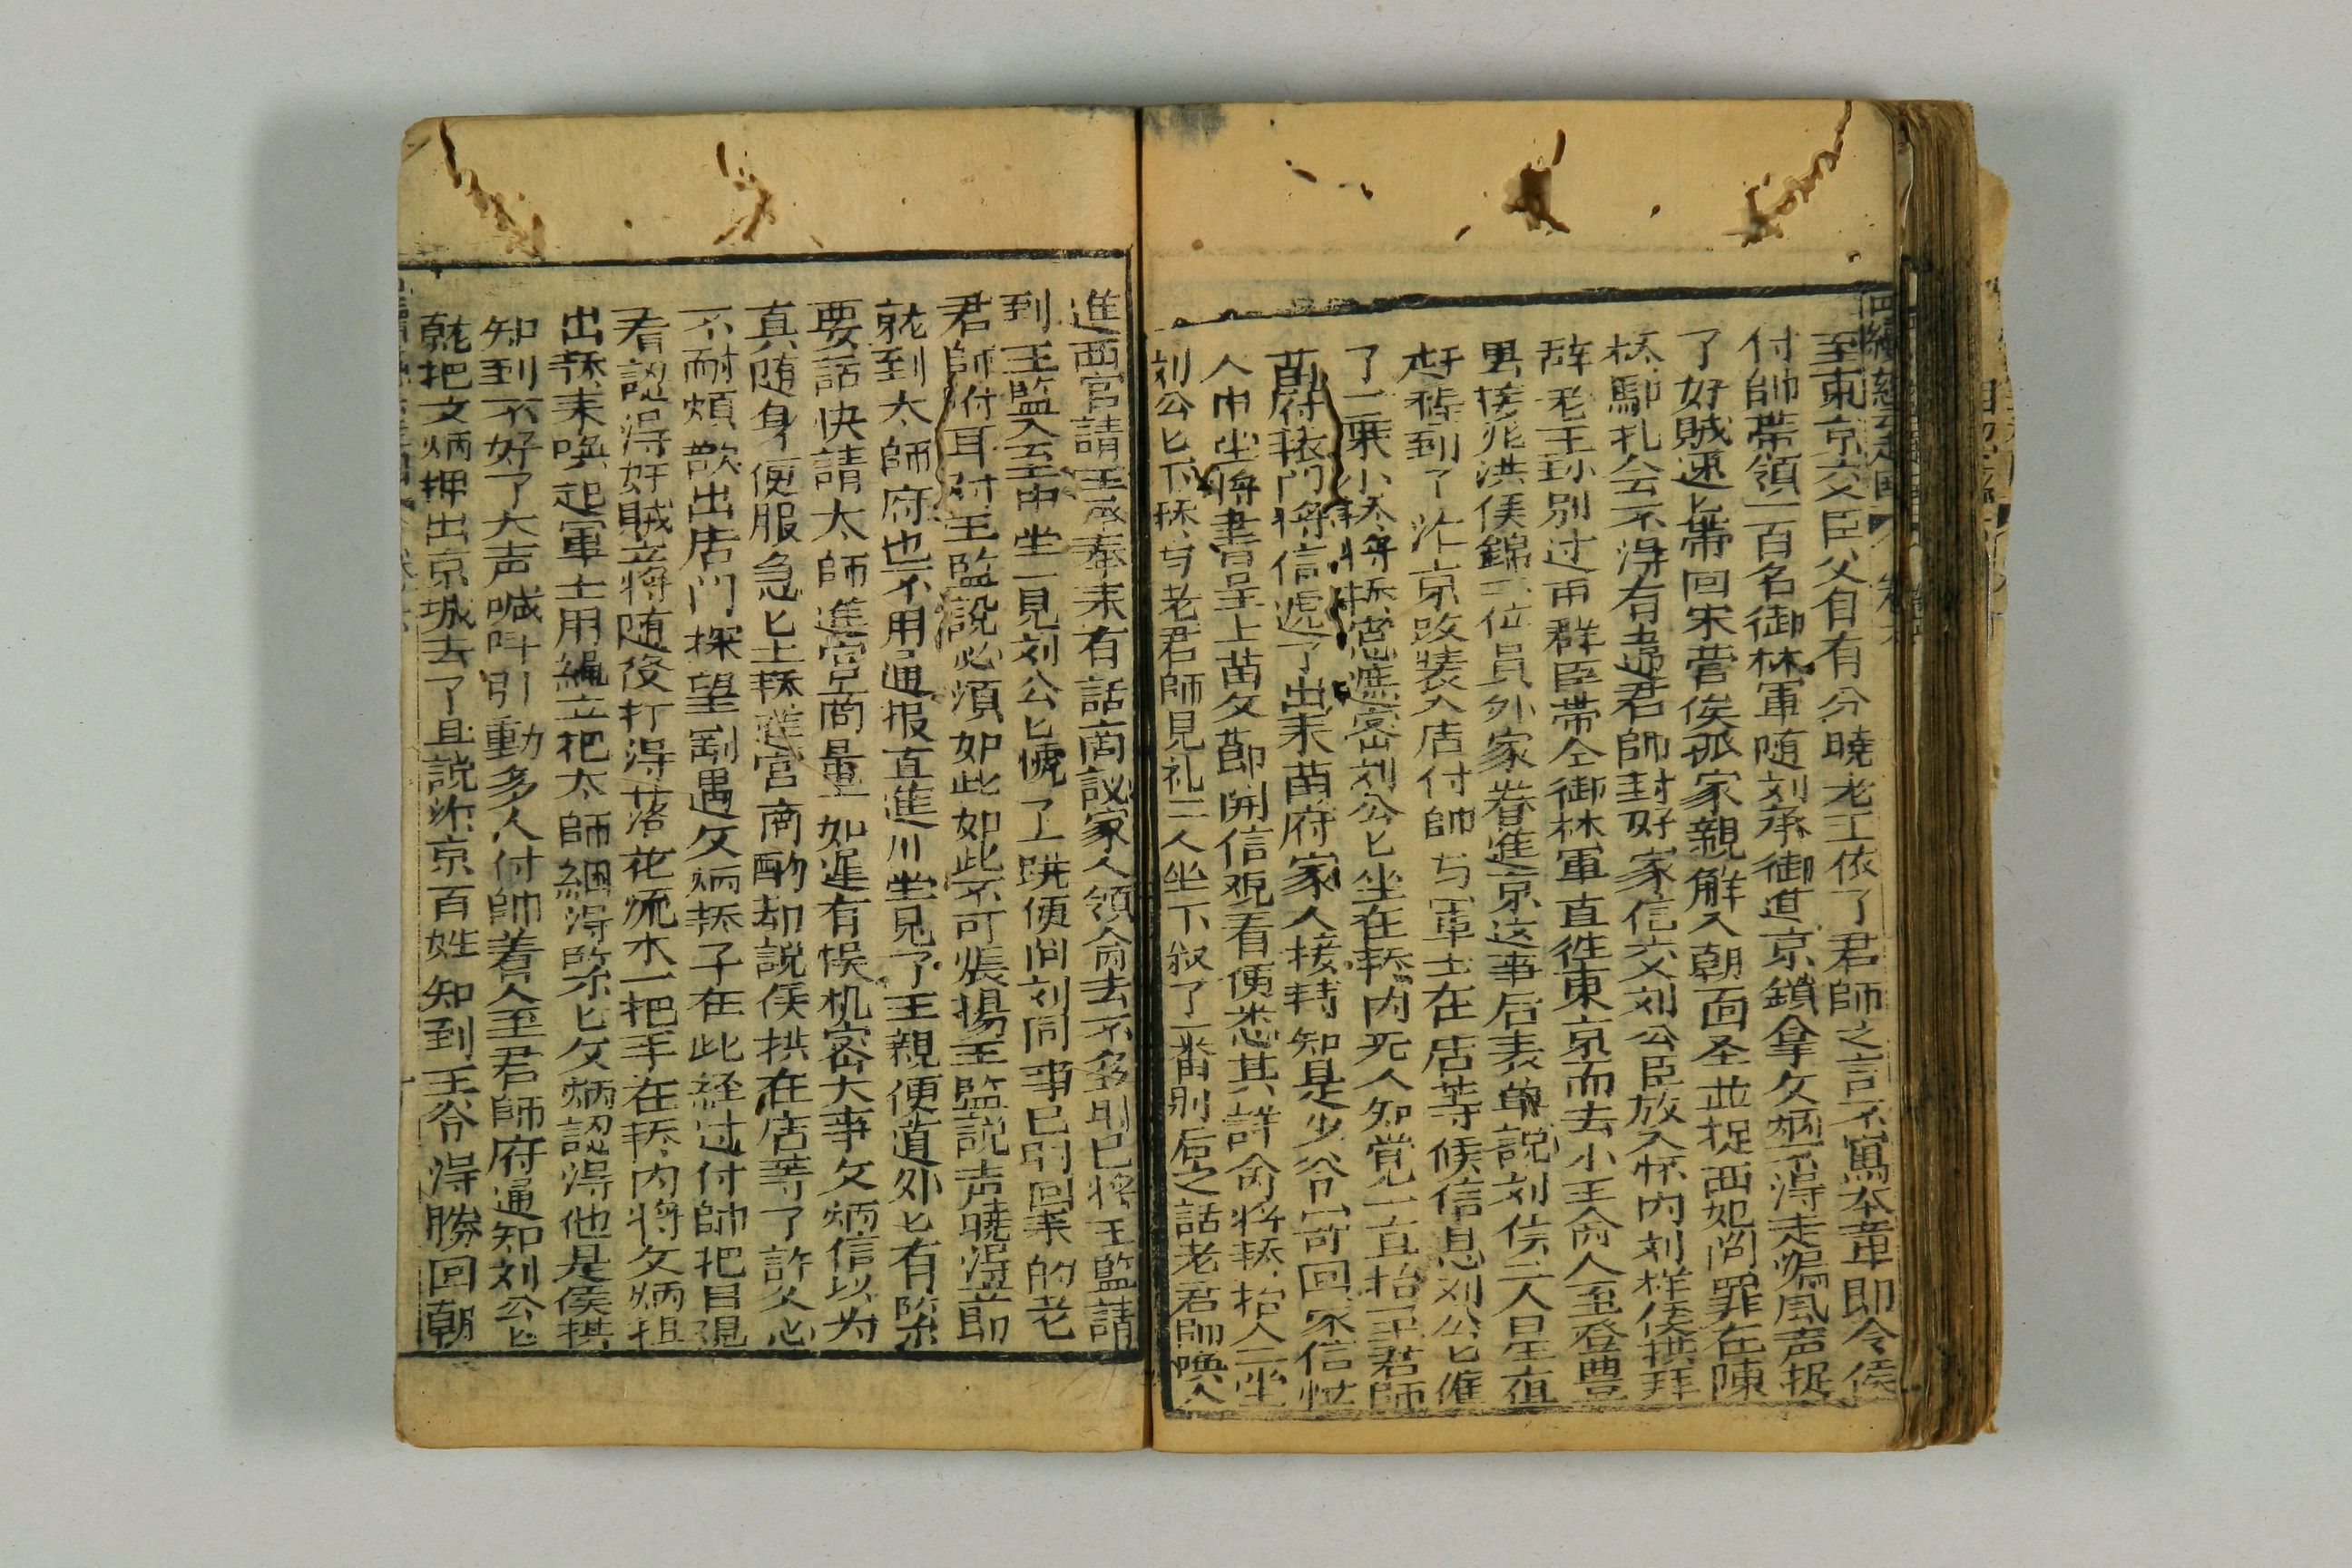 至東京交臣父自有分曉老王依了君師之言不寫本章即令侯
付帥帶領一百名御林軍随刘承御進京鎖拿文炳不得走漏風声捉
了好賊速匕帶回宋营俟孤家親解入朝面圣並捉西妃問罪在陳
桥駅扎会不得有違君師封好家信交刘公臣放入怀内刘样侯拱拜
辞老王孙别过两群臣帶仝御林軍直徃東京而去小王命人至登豊
县接死洪侯錦三位員外家眷進京这事后表单説刘侯二人星夜
赶程到了汴京改装入店付帥与軍士在店等候信息刘公匕催
了二乘小轿将轿窓遮密刘公匕坐在轿内无人知覚一直抬至君師
苗府轅門将信逓了出来苗府家人接转知是少爷寄回家信忙
人中坐将書呈上苗父即開信观看便悉其詳命将轿抬入二坐
刘公匕下轿与老君師見礼二人坐下叙了一番别后之話老君師喚人
進西宮請王监奉来有話商議家人領命去不多时已将王监請
到王監入至中坐一見刘公匕唬了一跳便问刘同事已时回来的老
君師附耳对王監說必須如此如此不可張揚王監説声曉淂即
就到太師府也不用通报直進川坐見了王親便道外匕有隙
要話快請太師進宮商量如遲有悮机密大事文炳信以为
真随身便服急匕上轿進宮商酌却説侯拱在店等了許久心
不耐煩歆出店门探望剛遇文炳轿子在此經过付帥把目観
看認淂奸賊立將随後打淂落花流水一把手在轿内将文炳扭
出轿来喚起軍士用繩立把太師綑淂緊匕文炳認淂他是侯拱
知到不好了大声喊叫引動多人付帥着人至君師府通知刘公匕
就把文炳押出京城去了且説汴京百姓知到王爷淂勝回朝